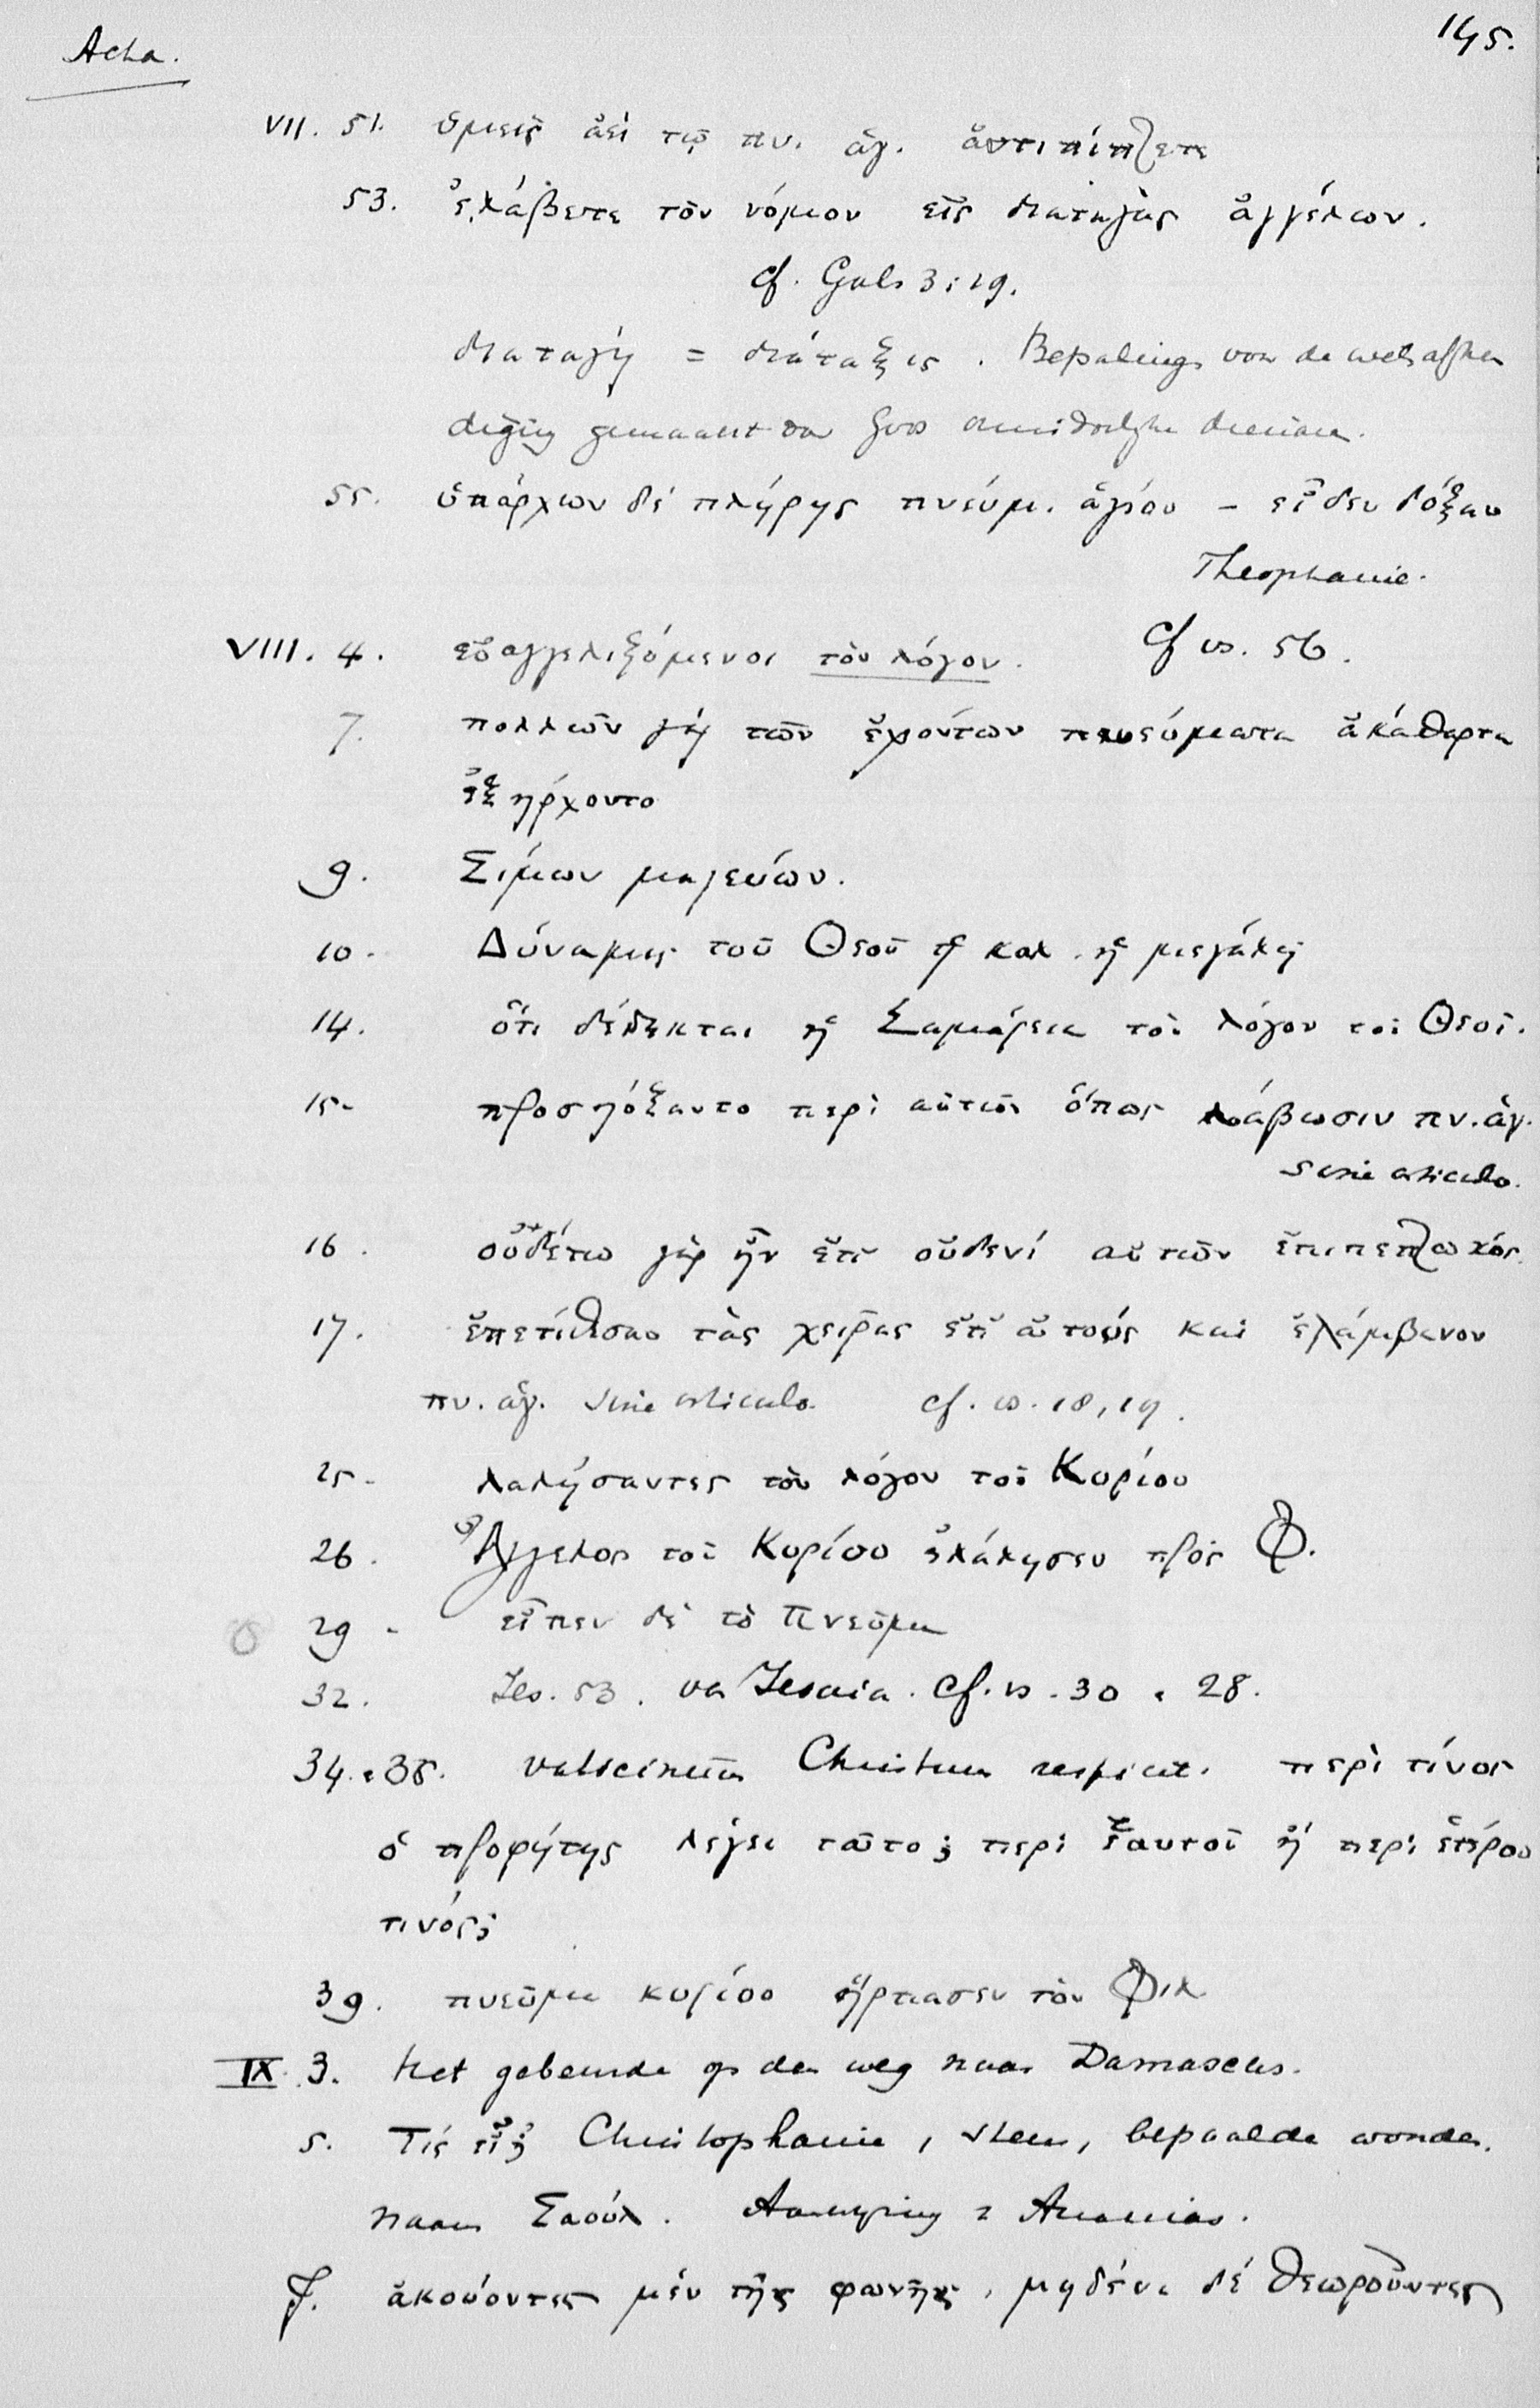 145.
Acta.
VII. 51. ὑμεῖς ἀεὶ τῷ πν. ἁγ. ἀντιπίπτετε
53. ἐλάβετε τὸν νόμον εἰς διαταγὰς ἀγγέλων.
cf. Gal. 3:19.
διαταγή = διάταξις. Bepaling van de wet, afkon
diging gemaakt van Gods dienaren.
55. ὑπάρχων δέ πλήρης πνεύμ. ἁγίου – εἶδεν δόξαν
Theophanie.
VIII. 4. εὐαγγελιζόμενοι τὸν λόγον. Cf vs. 56.
7. πολλῶν γάρ τῶν ἐχόντων πνεύματα ἀκάθαρτα
ἐξήρχοντο
9. Σίμων μαγεύων.
10. Δύναμις τοῦ Θεοῦ ἡ καλ. ἡ μεγάλη
14. ὅτι δέδεκται ἡ Σαμάρεια τὸν λόγον τοῦ Θεοῦ.
15. προσηύξαντο περὶ αὐτῶν ὅπως λάβωσιν πν. ἁγ.
sine articulo.
16. οὐδέπω γὰρ ἦν ἐπ' οὐδενί αὐτῶν ἐπιπεπτωκός.
17. ἐπετίθεσαν τὰς χεῖρας ἐπ' αὐτούς καὶ ἐλάμβανον
πν. ἁγ. sine articulo. cf. vs. 18, 19.
25. λαλήσαντες τὸν λόγον τοῦ Κυρίου
26. Ἄγγελος τοῦ Κυρίου ἐλάλησεν πρὸς Φ.
29. εἶπεν δὲ τὸ Πνεῦμα
32. Jes. 53. va Jesaia. Cf. vs. 30 . 28.
34. . 35. vaticinium Christum respicit. περὶ τίνος
ὁ προφήτης λέγει τοῦτο; περὶ ἑαυτοῦ ἢ περὶ ἑτέρου
τινός;
39. πνεῦμα κυρίου ἥρπασεν τὸν Φιλ
IX. 3. Het gebeurde op den weg naar Damascus.
5. Τίς εἶ; Christophanie, stem, bepaalde woorden.
naam Σαούλ. Aanwijzing v Ananias.
7. ἀκούοντες μέν τῆς φωνῆς, μηδένα δέ θεωροῦντες